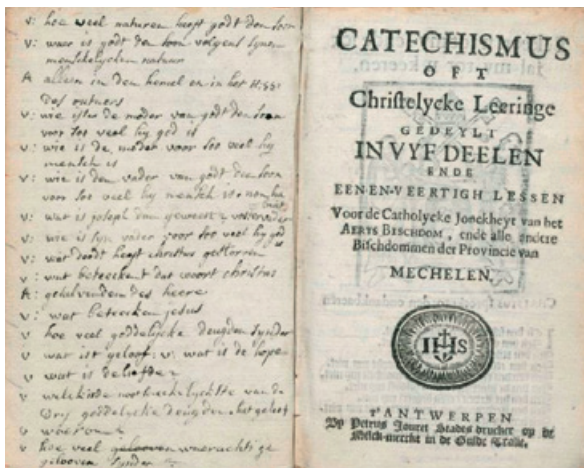 v: hoe veel naturen heeft godt den soon
v: waer is godt den soon volgens synen
menschelycken natuer
A alleen in den hemel en in het H:
des autaers
v: wie is de moder van godt den soon
voor soo veel hy god is
v: wie is de moder voor soo veel hy
mensch is
v: wie is den vader van godt den soon
voor soo veel hy mensch is
v: wat is joseph dan geweest
v: wie is syn vader voor soo veel hy god
is
v: wat doodt heeft christus gestorven
v: wat beteeckent dat woort christus
A: gesalvenden des heere
v: wat beteecken jesus
v hoe veel goddelycke deugden synder
v wat ist geloof: v: wat is de hope
v wat is de liefde
v welck is de van de
dry goddelycke deugden het geloof
v waerom
v hoe veel waerachtige
gelooven synder
CATECHISMUS
OFT
Christelycke Leeringe
GEDEYLT
IN VYF DEELEN
ENDE
EEN-EN-VEERTIGH LESSEN
Voor de Catholycke Jonckheyt van het
AERTS BISCHDOM, ende alle andere
Bischdommen der Provincie van
MECHELEN.
IHS
T'ANTWERPEN
By Petrus Jouret Stadts drucker op de
Melck-merckt in de Gulde